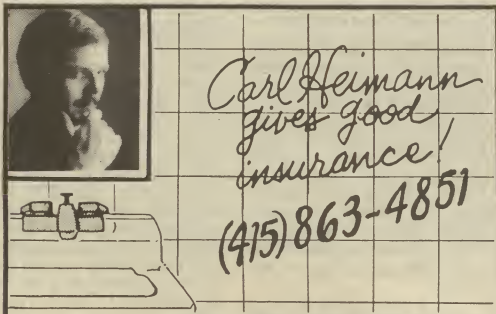 Carl Heimann
gives good
insurance!
(415) 863-4851